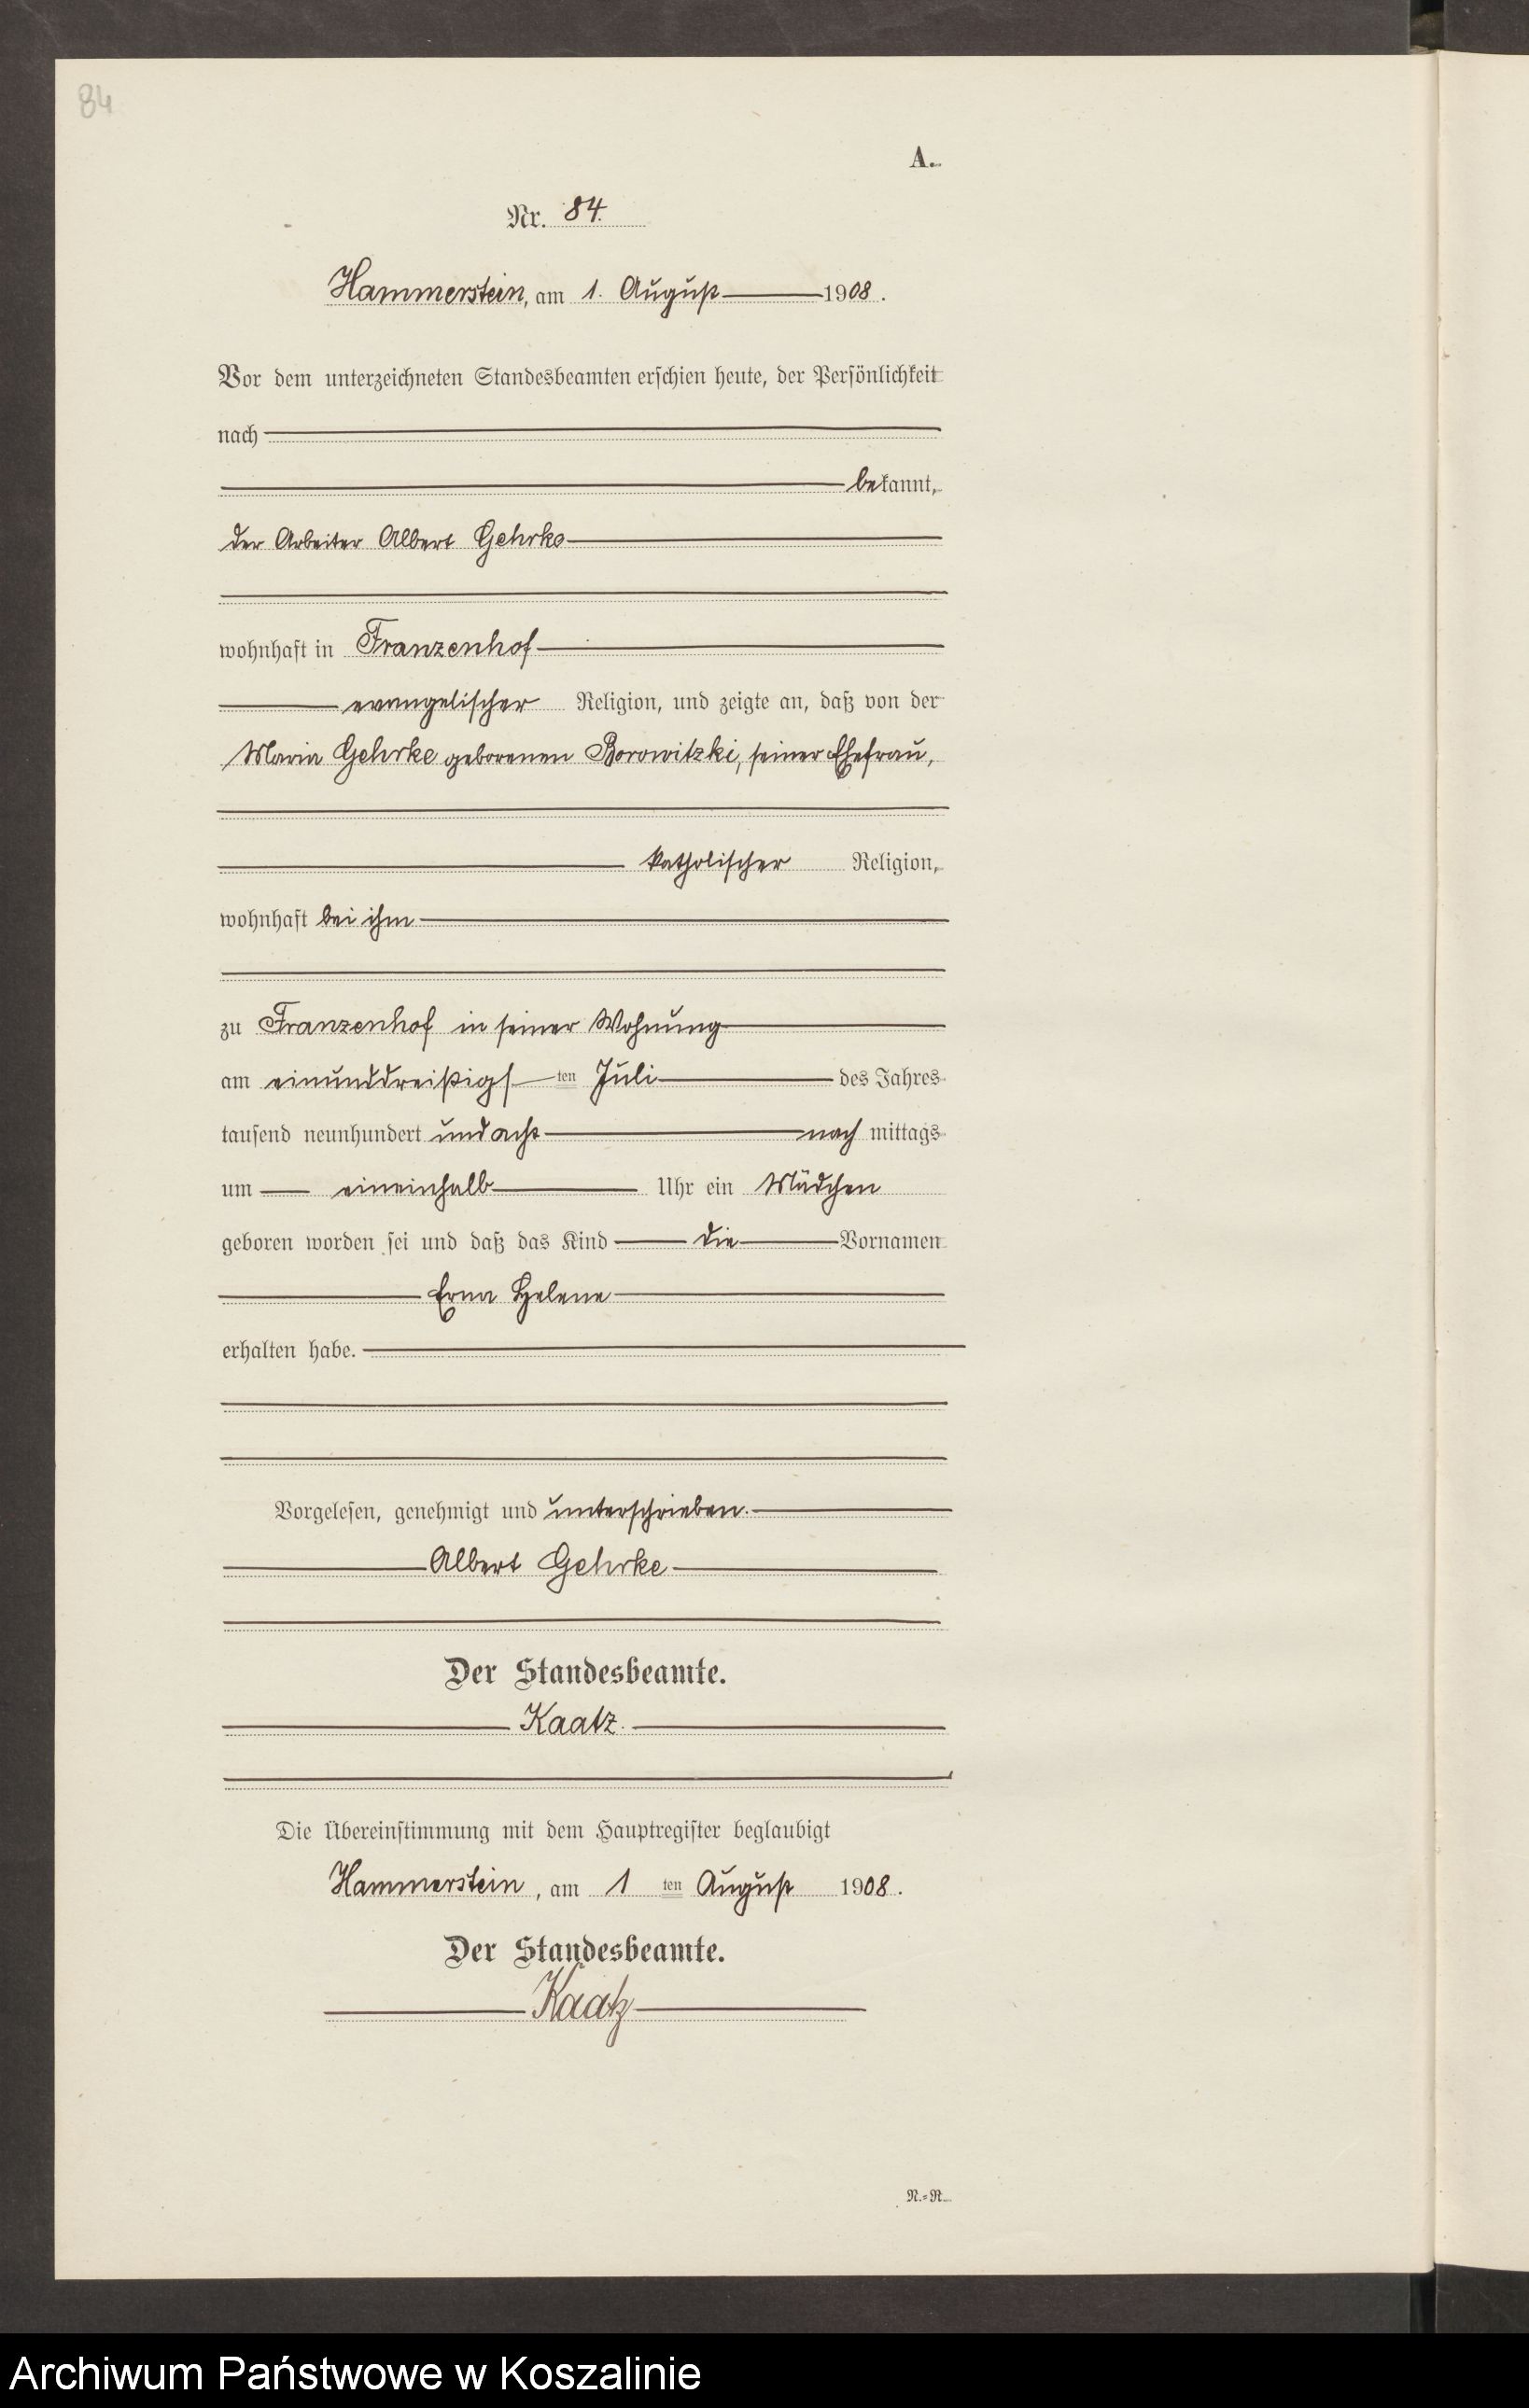 84
A.
Nr. 84.
Hammerstein, am 1. August 1908.
Vor dem unterzeichneten Standesbeamten erschien heute, der Persönlichkeit
nach
bekannt,
der Arbeiter Albert Gehrke
wohnhaft in Franzenhof
evangelischer Religion, und zeigte an, daß von der
Maria Gehrke geborenen Borowitzki, seiner Ehefrau,
katholischer Religion,
wohnhaft bei ihm
zu Franzenhof in seiner Wohnung
am einunddreißigsten Juli des Jahres
tausend neunhundert und acht nachmittags
um eineinhalb Uhr ein Mädchen
geboren worden sei und daß das Kind die Vornamen
Erna Helene
erhalten habe.
Vorgelesen, genehmigt und unterschrieben.
Albert Gehrke
Der Standesbeamte.
Kaatz.
Die Übereinstimmung mit dem Hauptregister beglaubigt
Hammerstein, am 1 ten August 1908.
Der Standesbeamte.
Kaatz
N.=R.
Archiwum Państwowe w Koszalinie